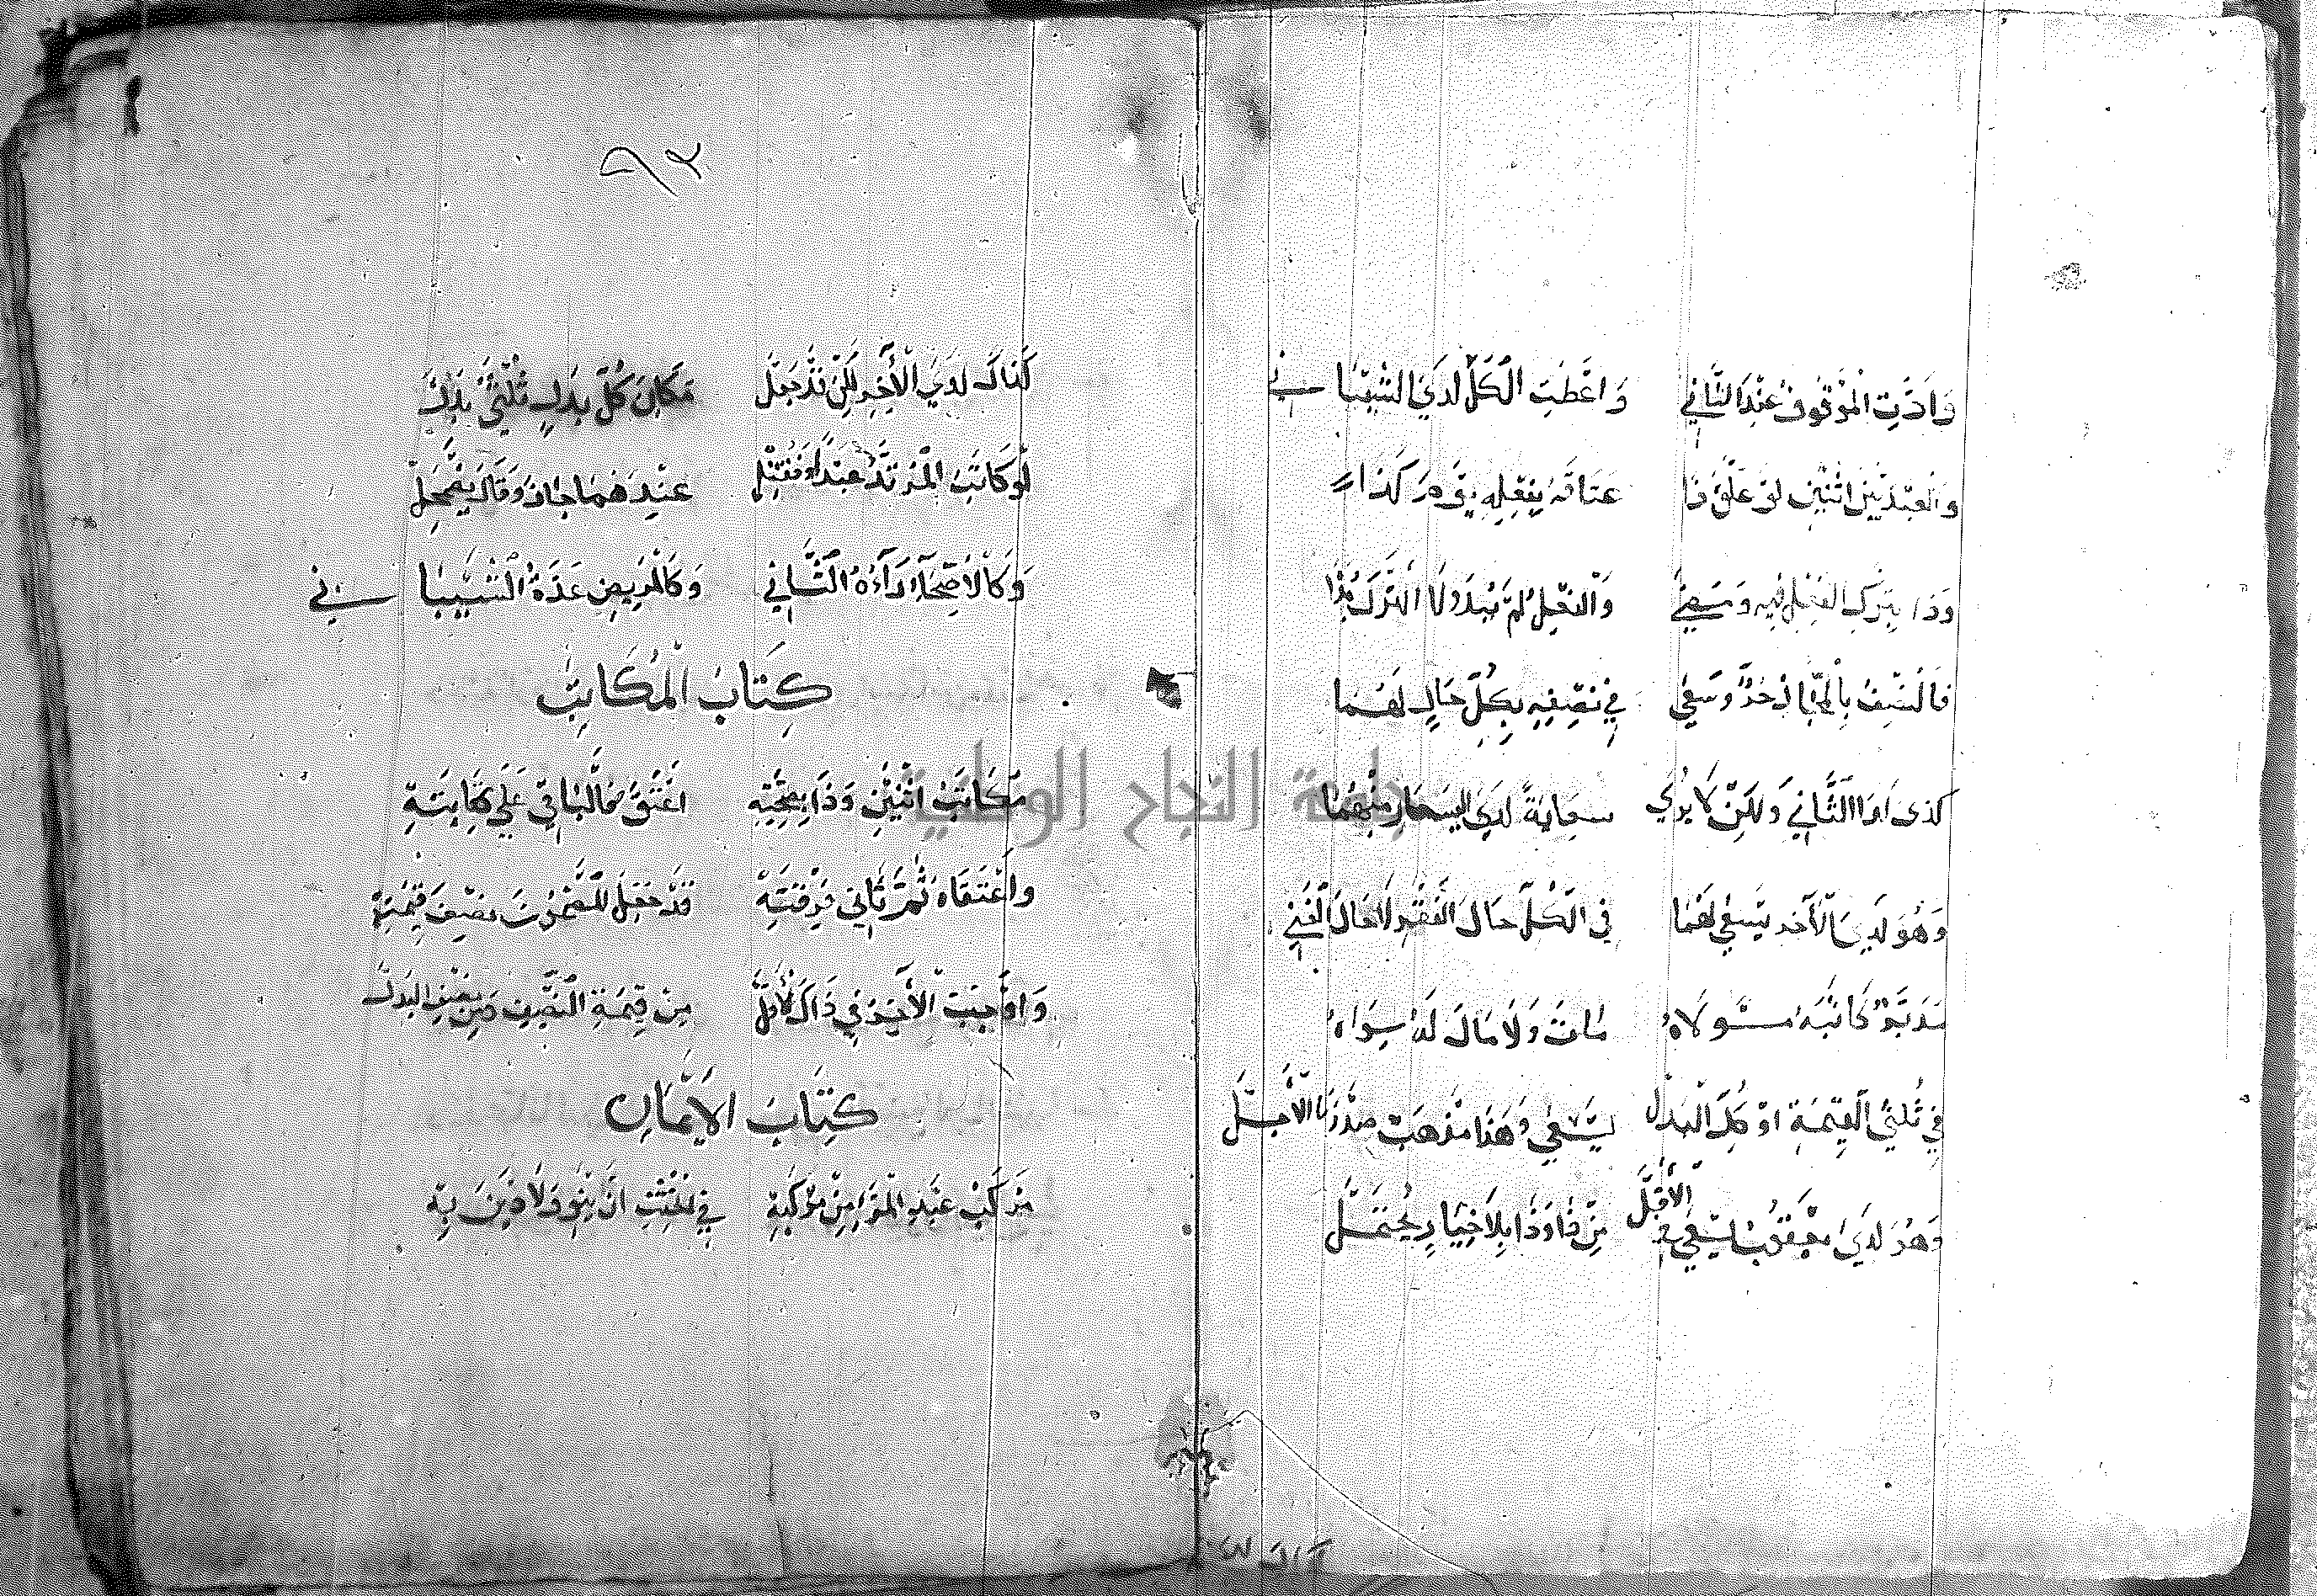 وَادَّتِ الْمَوْقُوفَ عِنْدَ الثَّانِي وَاعْطَتِ الْكُلَّ لَدَى الشَّيْبَانِي
وَالْعَبْدَيْنِ اثْنَيْنِ لَوْ عَلَّقَ ذَا عَتَاقَهُ بِفِعْلِهِ يَوْمَ كَذَا
وَذَا بِتَرْكِ الْفِعْلِ فِيهِ وَسَعَى وَالْفِعْلُ لَمْ يَبْدُ وَلَا التَّرْكُ
فَالنِّصْفُ بِالْمَجَّانِ حُرٌّ وَسَعَى فِي نِصْفِهِ بِكُلِّ حَالٍ لَهُمَا
كذى الثَّانِي وَلَكِنْ لَا يُرَي سعَايَةً لَدَى الْيَسَارِ مِنْهُمَا
وَهُوَ لَدَى الْآخِرِ يَسْعَى لَهُمَا فِي الْكُلِّ حَالَ الْفَقْرِ لَا حَالَ الْغِنَى
مُدَبَّرٌ كَاتَبَهُ مَوْلَاهُ مَاتَ وَلَا مَالَ لَهُ سِوَاهُ
فِي ثُلُثَيِ الْقِيمَةِ اوْ كُلِّ الْبَدَلْ يَسْعَى وَهَذَا مَذْهَبُ صَدْرِنَا الْأَجَلّ
وَهُوَ لَدَى يَعْقُوبَ يَسْعَى فِي الْأَقَلّ مِنْ ذَا وَذَا بِلَا خِيَارٍ يُحْتَمَلْ
٩٢
كَذَاكَ لَدَي الْأَخِيرِ لَكِنْ قَدْ جَعَلْ مَكَانَ كُلِّ بَدَلٍ ثُلْثَيْ بَدَلْ
لَوْ كَاتَبَ الْمُرْتَدُّ عَبْدًا وَقُتِلْ عِنْدَهُمَا جَازَ وَقَالَ يَضْمَحِلْ
وَكَالْأَصِحَّاءِ رَآهُ الثَّانِي وَكَالْمَرِيضِ عَدَّهُ الشَّيْبَانِي
كِتَابُ الْمُكَاتَبِ
مُكَاتَبُ اثْنَيْنِ وَذَا بِحِصَّتِهِ اعْتَقَ فَالْبَاقِي عَلَى كِتَابَتِهِ
وَاعْتَقَاهُ ثُمَّ ثَانِي فِرْقَتِهْ قَدْ جَعَلَ الْمَضْمُونَ نِصْفَ قِيمَتِهْ
وَاوْجَبَ الْأَخِيرُ فِي ذَاكَ الْأَقَلّ مِنْ قِيمَةِ النِّصْفِ وَمِنْ نِصْفِ الْبَدَلْ
كِتَابُ الْأَيْمَانِ
مَرْكَبُ عَبْدِ الْمَرْءِ مِنْ مَرْكَبِهِ فِي الْحِنْثِ انْ يَنْوِ وَلَا دَيْنَ بِهِ